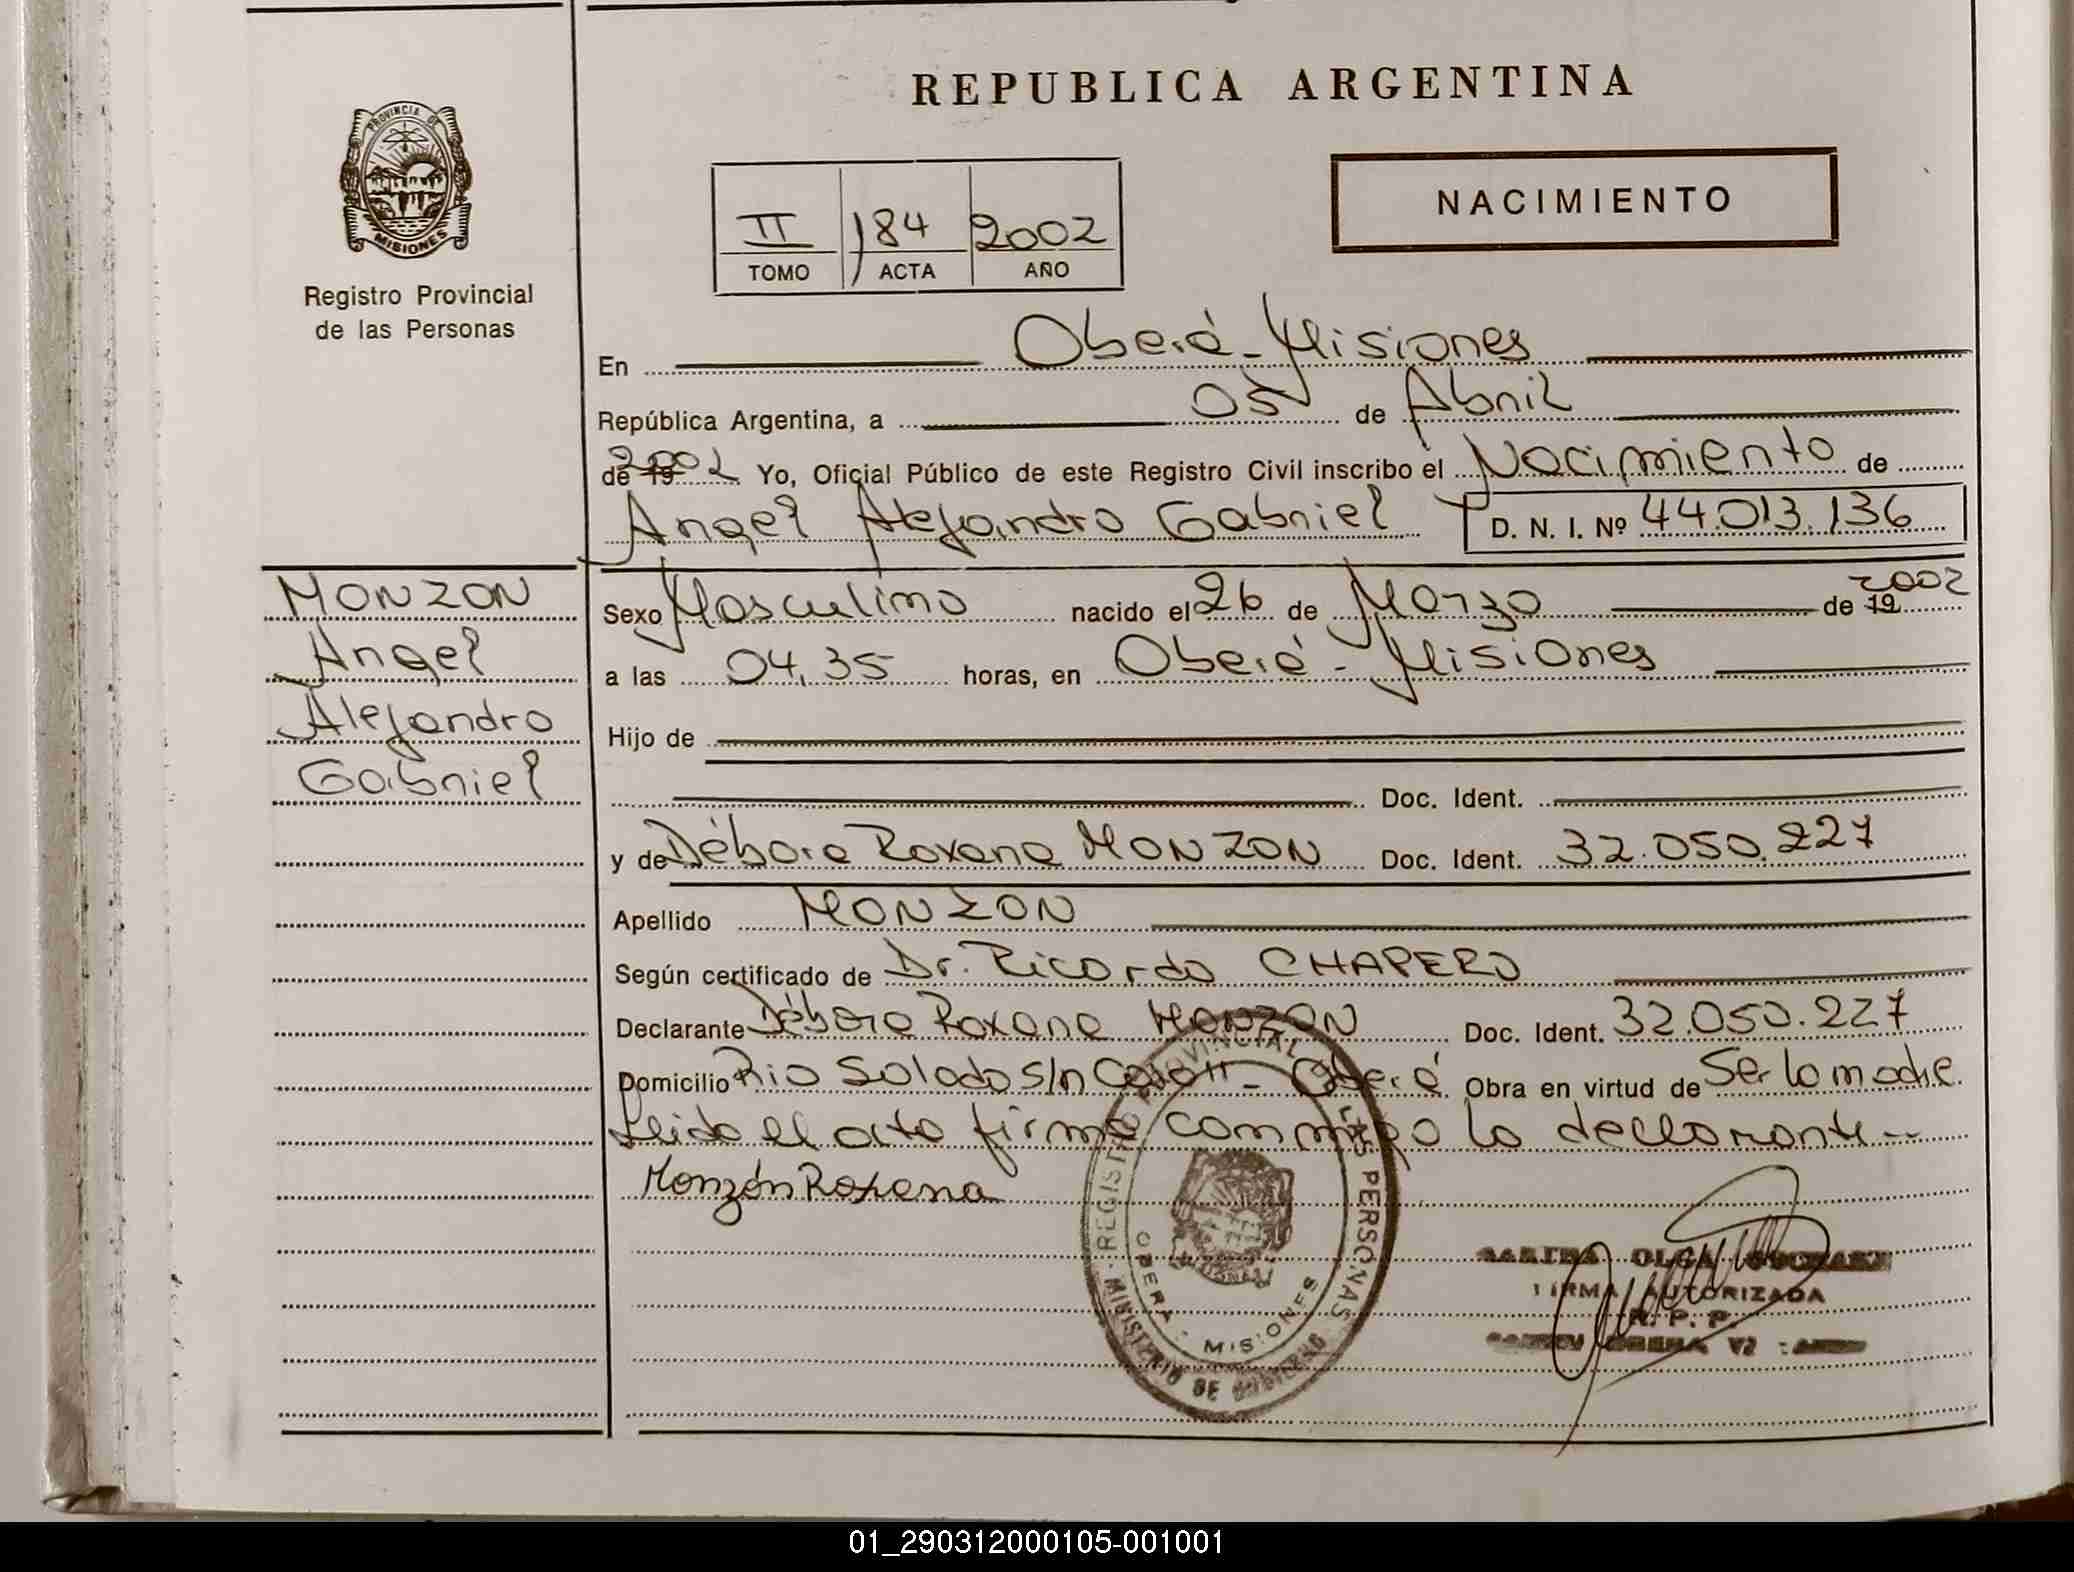 REPUBLICA ARGENTINA
PROVINCIA DE
MISIONES
Registro Provincial
de las Personas
NACIMIENTO
II 184 2002
TOMO ACTA AÑO
En Oberá - Misiones
República Argentina, a 05 de Abril
de 19 2002 Yo, Oficial Público de este Registro Civil inscribo el Nacimiento de
Angel Alejandro Gabriel D. N. I. Nº 44.013.136
MONZON
Angel
Alejandro
Gabriel
Sexo Masculino nacido el 26 de Marzo de 19 2002
a las 04,35 horas, en Oberá - Misiones
Hijo de
Doc. Ident.
y de Débora Roxana MONZON Doc. Ident. 32.050.227
Apellido MONZON
Según certificado de Dr. Ricardo CHAPERO
Declarante Débora Roxana MONZON Doc. Ident. 32.050.227
Domicilio Rio Salado S/n - Oberá Obra en virtud de Ser la madre
Leida el acta firma conmigo la declarante
Monzón Roxana
REGISTRO PROVINCIAL LAS PERSONAS
MINISTERIO DE GOBIERNO
OBERA - MISIONES
OLGA
FIRMA AUTORIZADA
R. P. P.
01_290312000105-001001